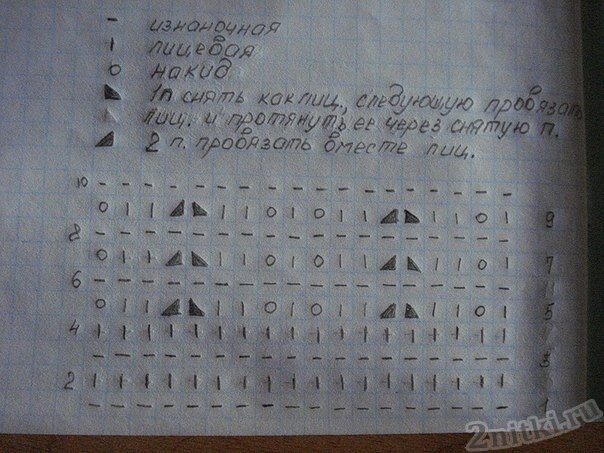 - изнаночная
I лицевая
O накид
◣ 1п снять как лиц., следующую провязать
лиц. и протянуть её через снятую п.
◢ 2 п. провязать вместе лиц.
10 - - - - - - - - - - - - - - - - - - - -
O I I ◢ ◣ I I O I O I I ◢ ◣ I I O I 9
8 - - - - - - - - - - - - - - - - - - - -
O I I ◢ ◣ I I O I O I I ◢ ◣ I I O I 7
6 - - - - - - - - - - - - - - - - - - - -
O I I ◢ ◣ I I O I O I I ◢ ◣ I I O I 5
4 I I I I I I I I I I I I I I I I I I
- - - - - - - - - - - - - - - - - - 3
2 I I I I I I I I I I I I I I I I I I
- - - - - - - - - - - - - - - - - - 1
2nitki.ru